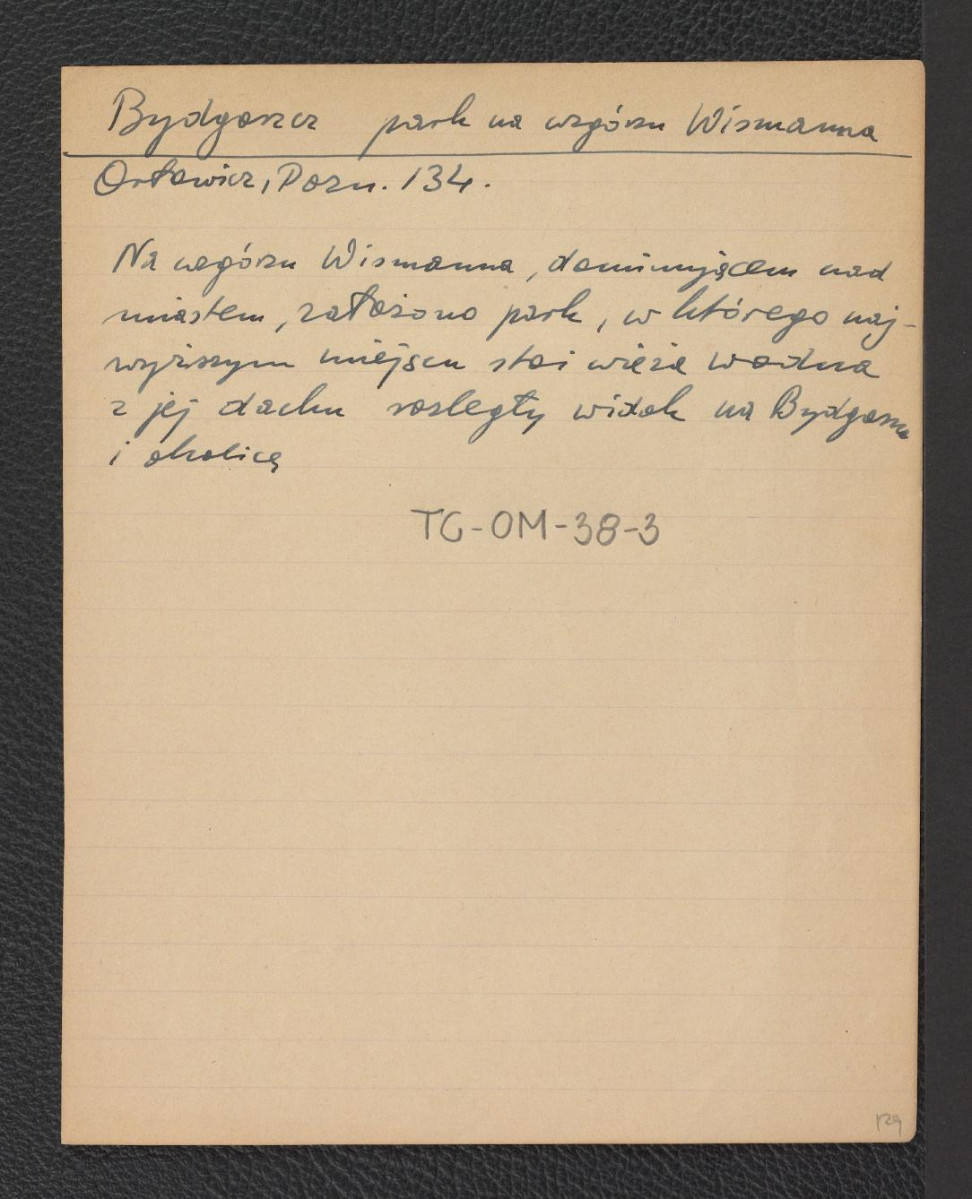 Bydgoszcz park na wzgórzu Wismanna
Orłowicz, Pozn. 134.
Na wzgórzu Wismanna, dominującem nad
miastem, założono park, w którego naj-
wyższym miejscu stoi wieża wodna
z jej dachu rozległy widok na Bydgoszcz
i okolicę
TG-OM-38-3
129